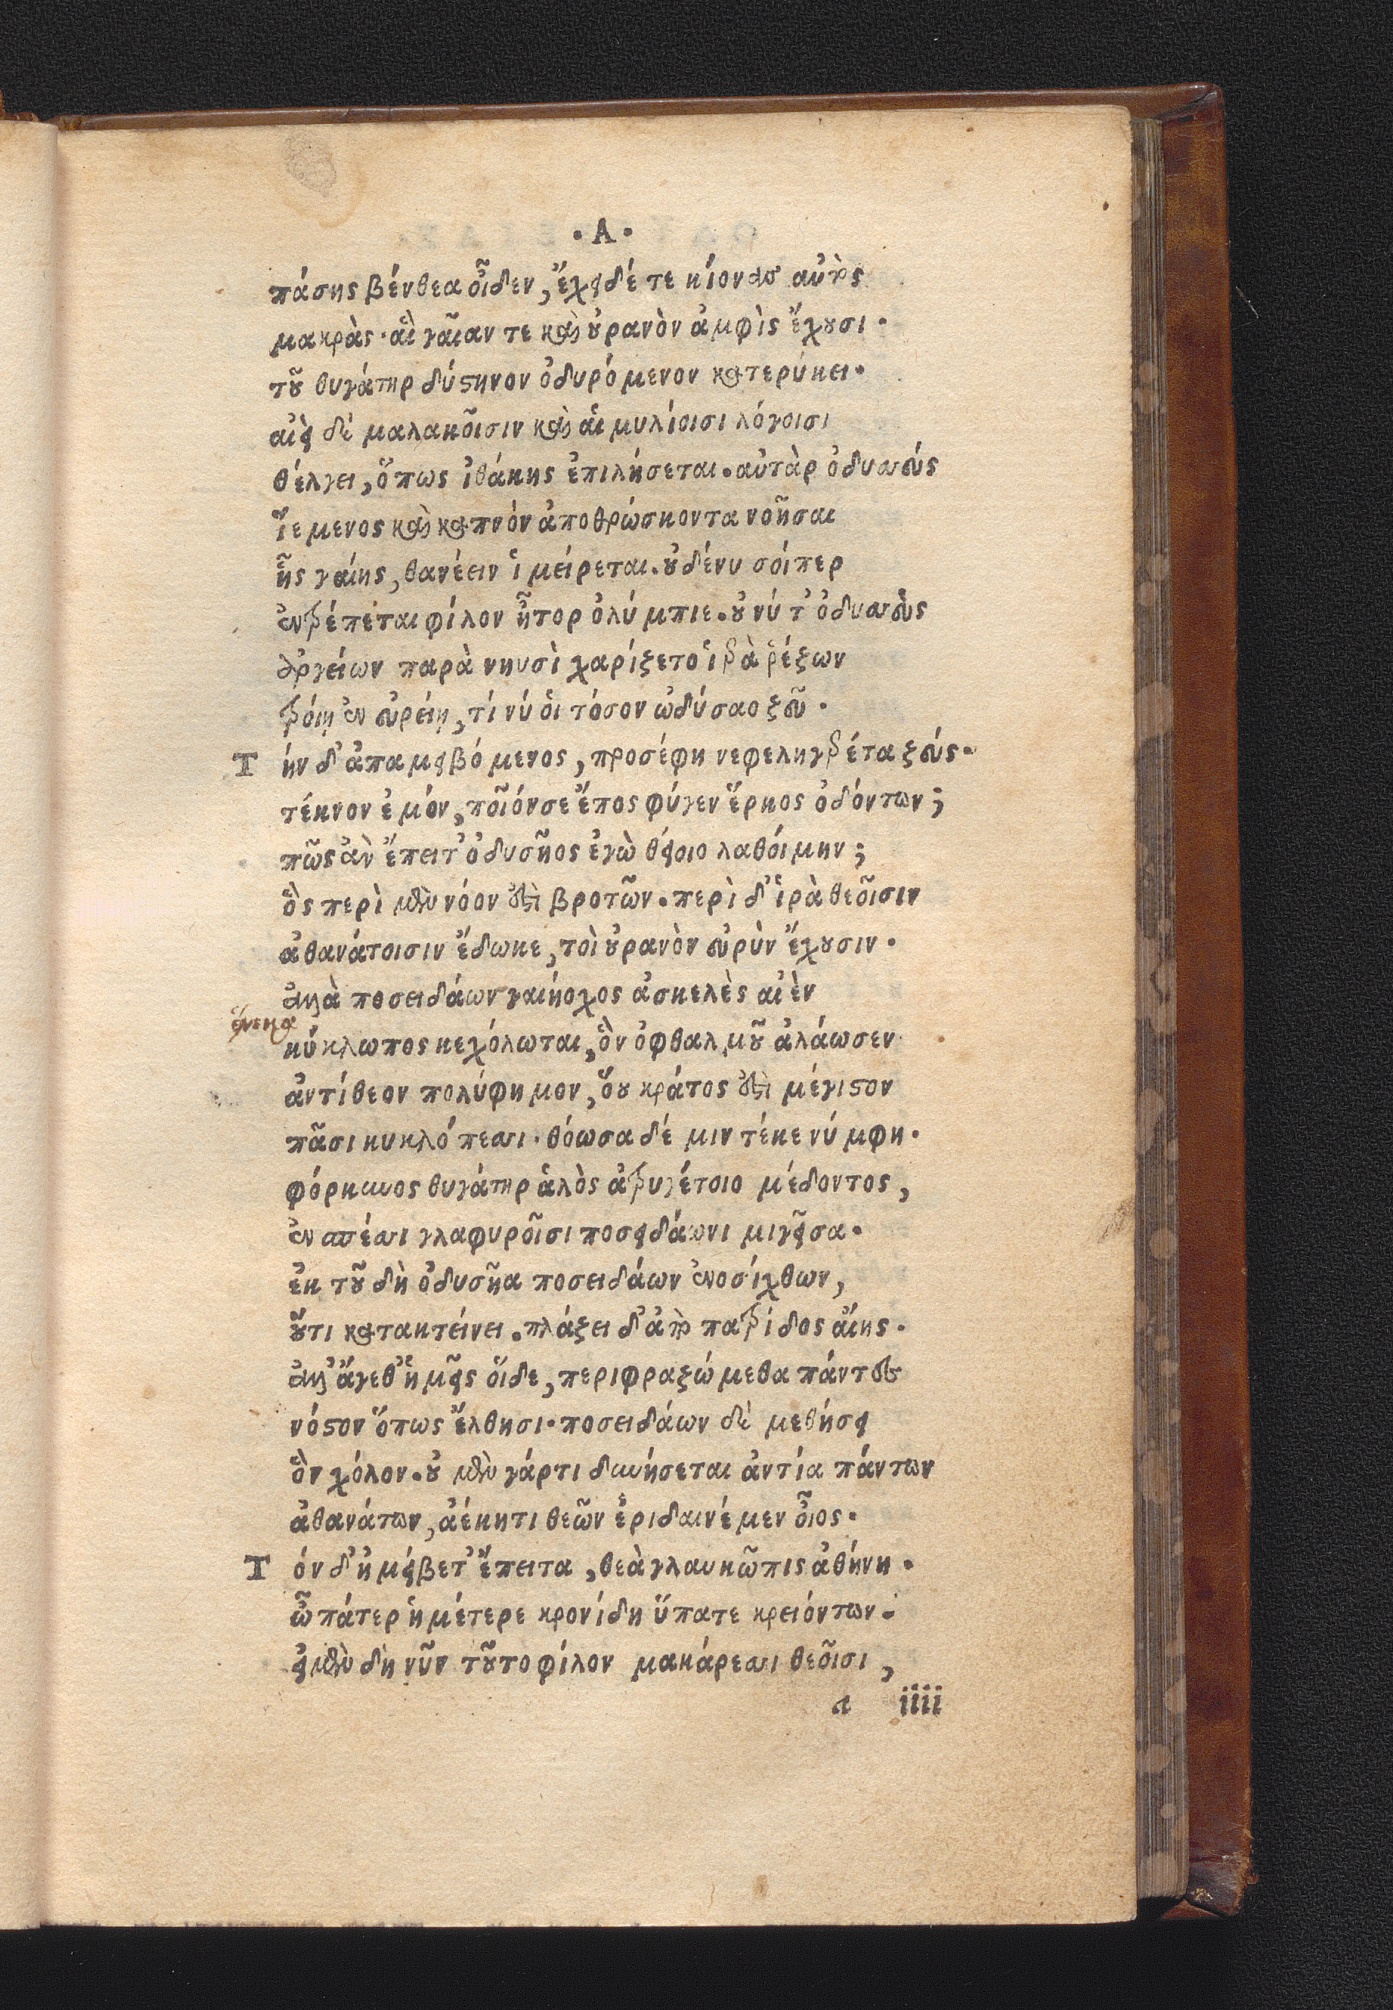 ·Α·
πάσης βένθεα οἶδεν, ἔχει δέ τε κίονας αὐτὸς
μακρὰς· αἳ γαῖαν τε καὶ οὐρανὸν ἀμφὶς ἔχουσι·
τοῦ θυγάτηρ δύστηνον ὀδυρόμενον κατερύκει·
αἰεὶ δὲ μαλακοῖσιν καὶ αἱμυλίοισι λόγοισι
θέλγει, ὅπως ἰθάκης ἐπιλήσεται. αὐτὰρ ὀδυσσεύς
ἵεμενος καὶ καπνόν ἀποθρώσκοντα νοῆσαι
ἧς γαίης, θανέειν ἱμείρεται. οὐδένυ σόιπερ
ἐντρέπεται φίλον ἦτορ ὀλύμπιε. οὐ νύ τ' ὀδυσσεὺς
ἀργείων παρὰ νηυσὶ χαρίζετο ἱερὰ ῥέζων
τροίῃ ἐν εὐρείῃ, τί νύ οἱ τόσον ὠδύσαο ζεῦ·
Τήν δ' ἀπαμειβόμενος, προσέφη νεφεληγερέτα ζεύς·
τέκνον ἐμόν, ποῖόνσε ἔπος φύγεν ἕρκος ὀδόντων;
πῶς ἂν ἔπειτ' ὀδυσῆος ἐγὼ θείοιο λαθοίμην;
ὃς περὶ μὲν νόον ἐστὶ βροτῶν. περὶ δ' ἱρὰ θεοῖσιν
ἀθανάτοισιν ἔδωκε, τοὶ οὐρανὸν εὐρὺν ἔχουσιν·
ἀλλὰ ποσειδάων γαιήοχος ἀσκελὲς αἰὲν
ἕνεκα
κύκλωπος κεχόλωται, ὃν ὀφθαλμοῦ ἀλάωσεν
ἀντίθεον πολύφημον, ὅου κράτος ἐστὶ μέγιστον
πᾶσι κυκλόπεσσι· θόωσα δέ μιν τέκε νύμφη·
φόρκυνος θυγάτηρ ἁλὸς ἀτρυγέτοιο μέδοντος,
ἐν σπέσσι γλαφυροῖσι ποσειδάωνι μιγεῖσα·
ἐκ τοῦ δὴ ὀδυσῆα ποσειδάων ἐνοσίχθων,
οὔτι κατακτείνει. πλάζει δ' ἀπὸ πατρίδος αἴης·
ἀλλ' ἄγεθ' ἡμεῖς οἵδε, περιφραζώμεθα πάντες
νόστον ὅπως ἔλθησι· ποσειδάων δὲ μεθήσει
ὃν χόλον. οὐ μὲν γάρτι δυνήσεται ἀντία πάντων
ἀθανάτων, ἀέκητι θεῶν ἐριδαινέμεν οἶος·
Τόν δ' ἠμείβετ' ἔπειτα, θεὰ γλαυκῶπις ἀθήνη·
ὦ πάτερ ἡμέτερε κρονίδη ὕπατε κρειόντων·
εἰ μὲν δὴ νῦν τοῦτο φίλον μακάρεσσι θεοῖσι,
a iiii